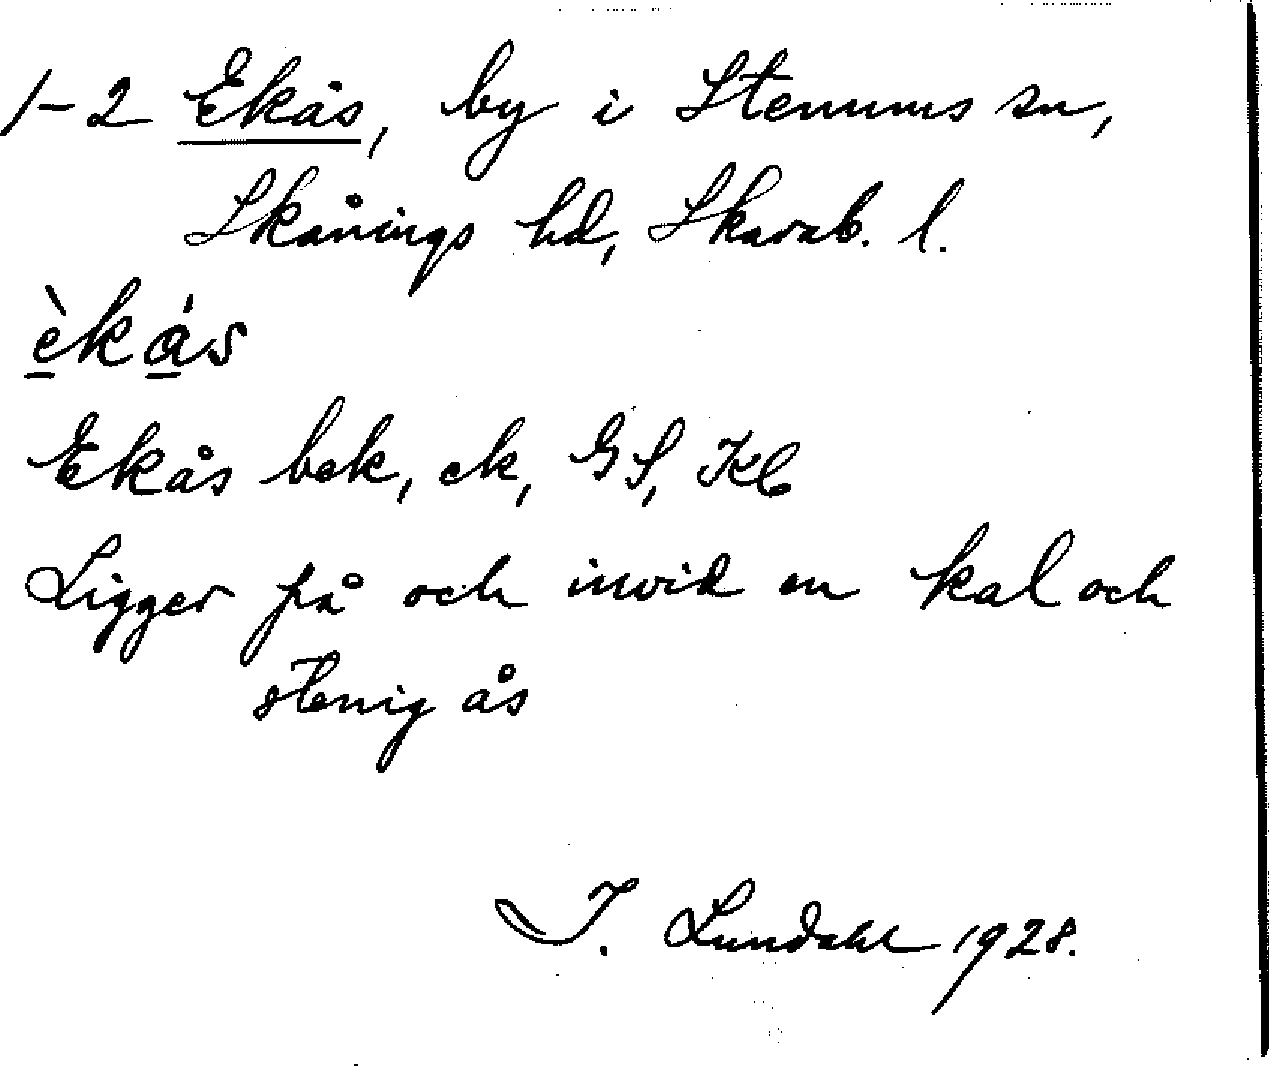 1-2 Ekås, by i Stenums sn,
Skånings hd, Skarab. l.
èkás
Ekås bek, ek, GS, Kb
Ligger på och invid en kal och
stenig ås
I. Lundahl 1928.